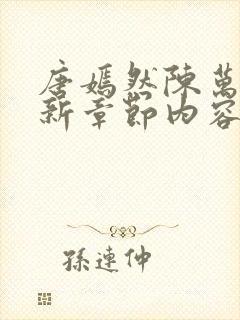 唐嫣然陳萬
新章節內容
孫連仲